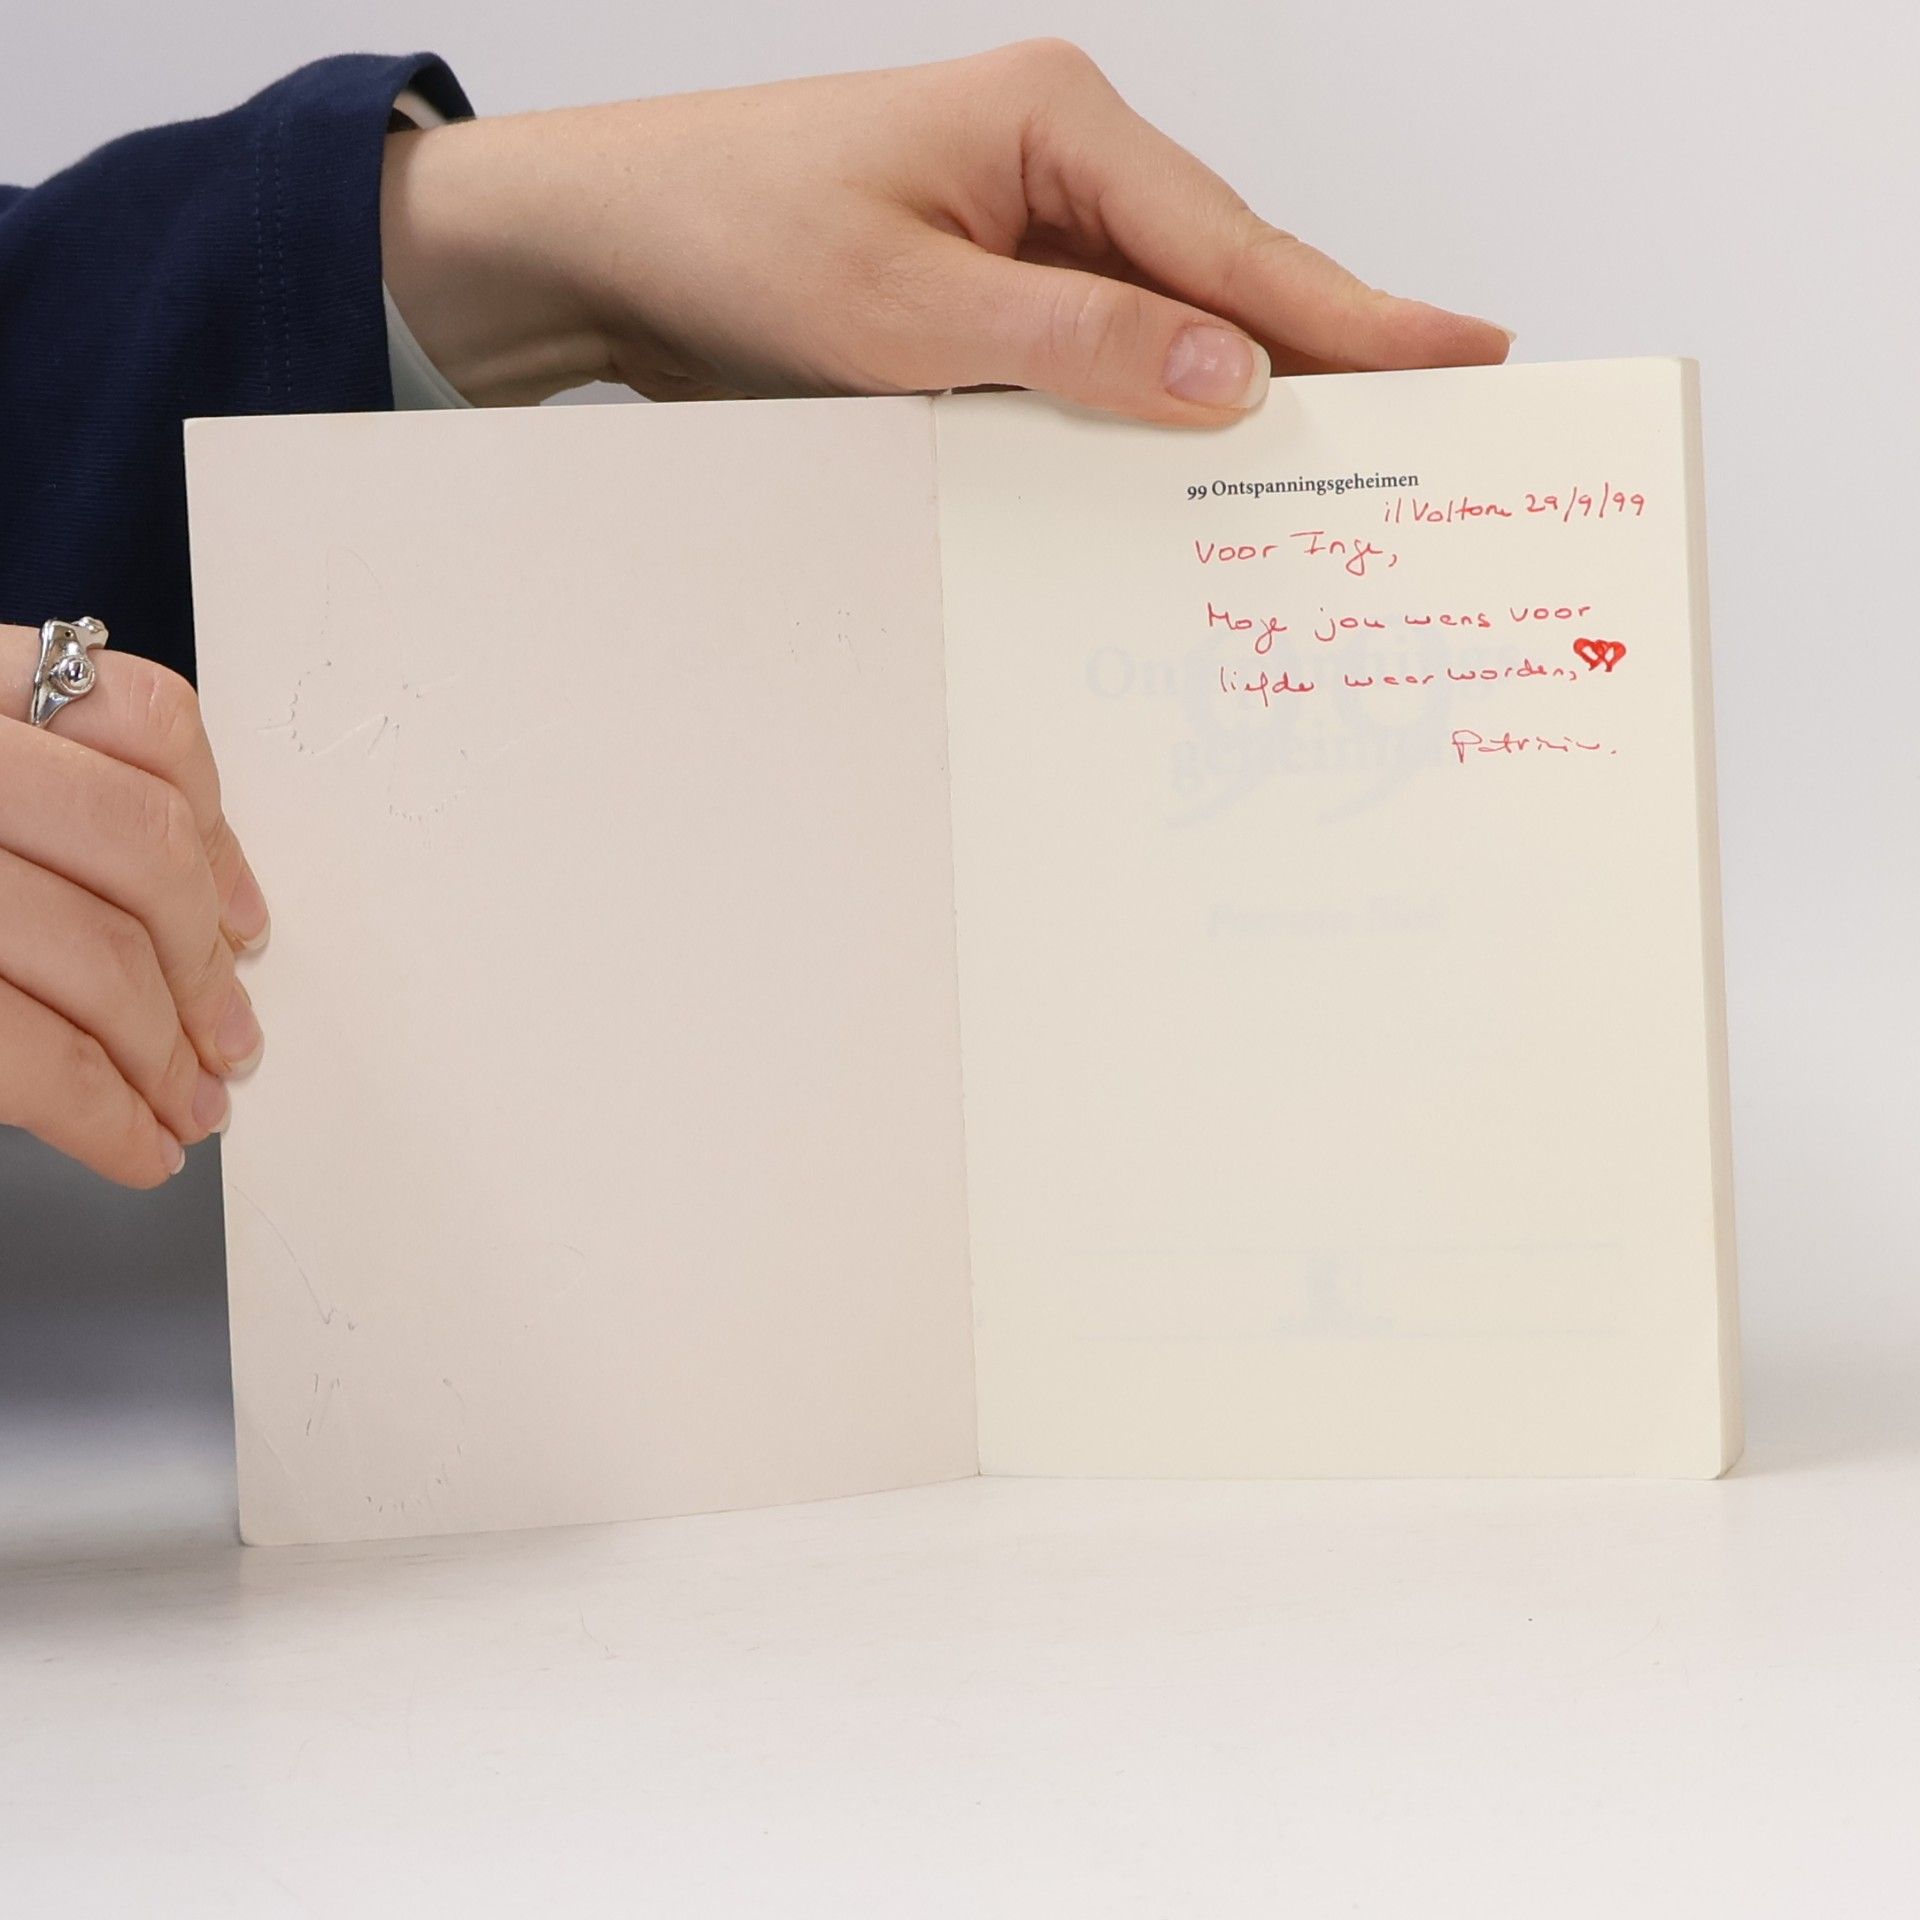 99 Ontspanningsgeheimen
il Voltone 29/9/99
Voor Inge,
Moge jou wens voor
liefde waar worden,